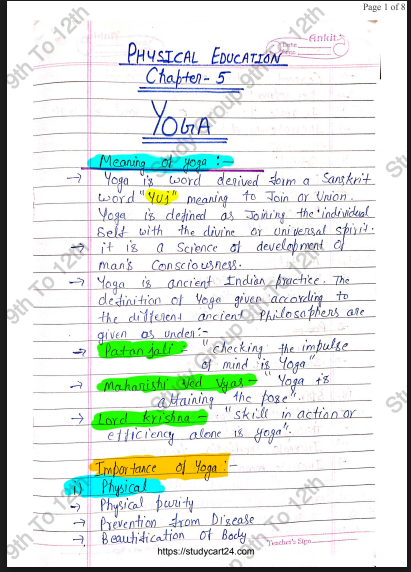 Page 1 of 8
Ankit
Date
PHYSICAL EDUCATION
Chapter-5
YOGA
Meaning of yoga :-
→ Yoga is word derived form a Sanskrit
word "Yuj" meaning to Join or Union.
Yoga is defined as Joining the individual
self with the divine or universal spirit.
→ it is a Science of development of
man's Consciousness.
→ Yoga is ancient Indian practice. The
definition of Yoga given according to
the different ancient Philosophers are
given as under:-
→ Patanjali - "checking the impulse
of mind is Yoga"
→ Maharishi Ved Vyas - "Yoga is
attaining the pose".
→ Lord Krishna - "skill in action or
efficiency alone is yoga".
Importance of Yoga :-
1) Physical
→ Physical purity
→ Prevention from Disease
→ Beautification of Body
https://studycart24.com
Teacher's Sign
Study Group 9th To 12th